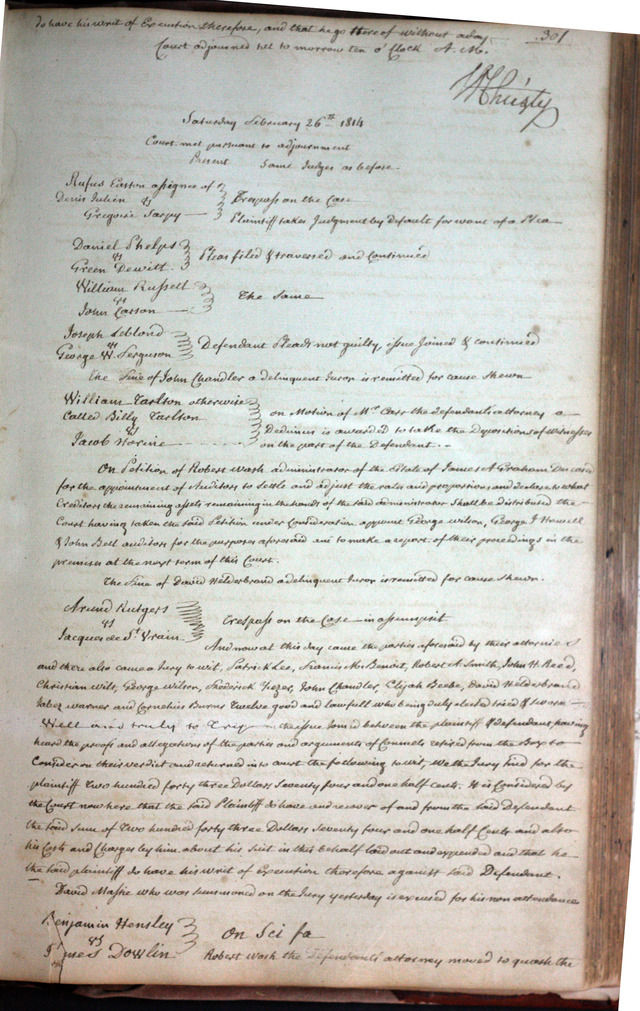 do have his writ of Execution therefore, and that he go thereof without a day 301
Court adjourned till to morrow ten o'Clock A. M.
Wm Christy
Saturday February 26th 1814
Court met pursuant to adjournment
Present Same Judges as before
Rufus Easton assignee of
Denis Julien
vs
Gregoire Sarpy
Trespass on the Case
Plaintiff takes Judgment by default for want of a Plea
Daniel Phelps
vs
Green Dewitt
Pleas filed & traversed and Continued
William Russell
vs
John Carson
The Same
Joseph Leblond
vs
George W. Ferguson
Defendant Pleads not guilty, issue Joined & continued
The Fine of John Chandler a delinquent Juror is remitted for cause shewn
William Tarlton otherwise
Called Billy Tarlton
vs
Jacob Horine
on Motion of Mr Carr the defendants attorney a
Dedimus is awarded to take the depositions of witnesses
on the part of the Defendant
On Petition of Robert Wash administrator of the Estate of James A Graham Deceased
for the appointment of Auditors to Settle and adjust the rates and proportions and declare to what
Creditors the remaining assets remaining in the hands of the said administrator shall be distributed the
Court having taken the said Petition under Consideration appoint George Wilson, George J Howell
& John Bell auditors for the purposes aforesaid and to make a report of their proceedings in the
premises at the next term of this Court.
The Fine of David Helderbrand a delinquent Juror is remitted for cause shewn.
Arend Rutgers
vs
Jacques de St Vrain
Trespass on the Case in assumpsit
And now at this day came the parties aforesaid by their attornies
and there also came a Jury to wit, Patrick Lee, Francis M. Benoit, Robert A. Smith, John H. Reed,
Christian Wilt, George Wilson, Frederick Yeizer, John Chandler, Elijah Beebe, David Helderbrand
Jabez Warner and Cornelius Burns Twelve good and lawfull who being duly elected tried & sworn
Well and truly to Try the issue Joined between the plaintiff & defendant, having
heard the proofs and allegations of the parties and arguments of Counsels retired from the Box to
Consider on their verdict and returned into court the following to wit, We the Jury find for the
plaintiff Two hundred forty three Dollars Seventy four and one half cents. It is Considered by
the Court now here that the said Plaintiff do have and recover of and from the said Defendant
the said Sum of Two hundred forty three Dollars Seventy four and one half Cents and also
his Costs and Charges by him about his suit in this behalf laid out and expended and that he
the said plaintiff do have his writ of Execution therefore against said Defendant.
David Massie who was summoned on the Jury yesterday is excused for his non attendance
Benjamin Hensley
vs
James Dowlin
On Sci fa
Robert Wash the Defendants attorney moved to quash the